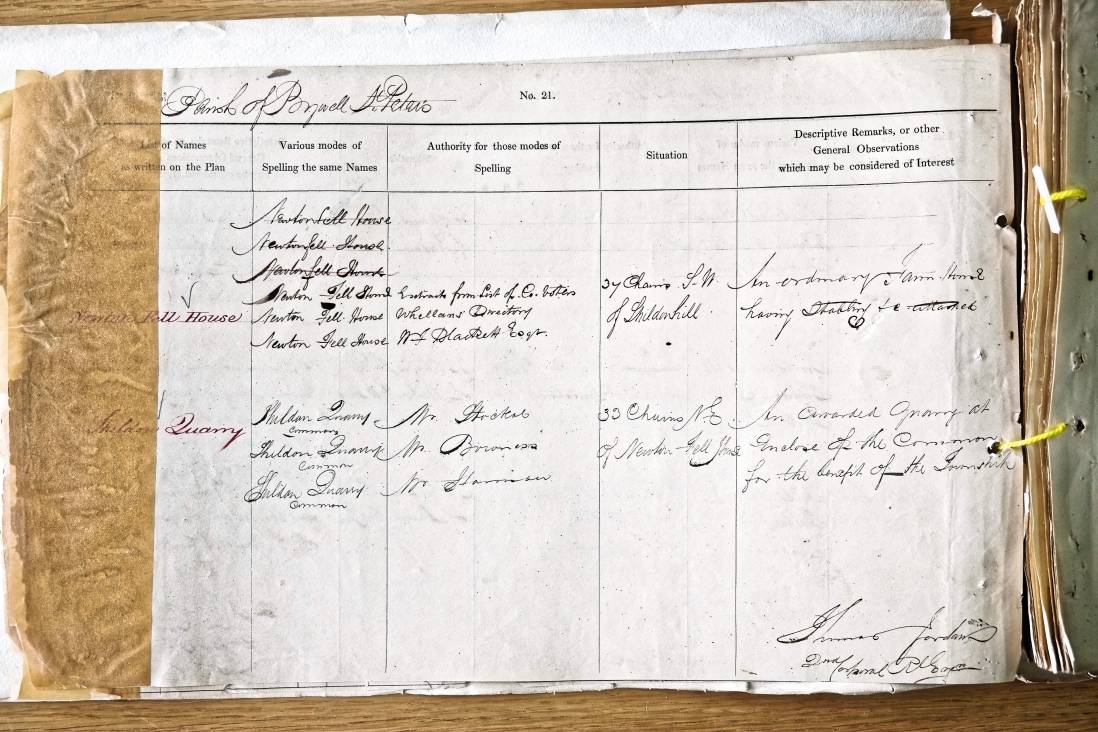 Parish of Bywell St. Peters
No. 21.
List of Names
as written on the Plan
Various modes of
Spelling the same Names
Authority for those modes of
Spelling
Situation
Descriptive Remarks, or other
General Observations
which may be considered of Interest
Newton Fell House
Newton fell House
Newtonfell House
Newtonfell House
Newton Fell House
Newton Fell House
Newton Fell House
Extracts from List of Co. Voters
Whellans Directory
Esqr.
37 Chains S.W.
of Shildonhill
An ordinary Farm House
having Stabling &c attached
Shildon Quarry
Shildon Quarry
Common
Shildon Quarry
Common
Shildon Quarry
Common
Mr. Stockal
Mr. Bowness
Mr. Harrison
33 Chains N.E
of Newton Fell House
An awarded Quarry at
Enclose of the Common
for the benefit of the Township
Thomas Jordan
2nd Corporal R.E